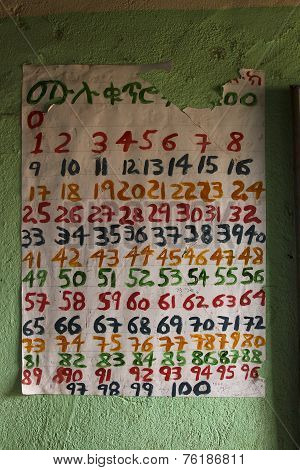 ሙሉ ቁጥር 00
0
1 2 3 4 5 6 7 8
9 10 11 12 13 14 15 16
17 18 19 20 21 22 23 24
25 26 27 28 29 30 31 32
33 34 35 36 37 38 39 40
41 42 43 44 45 46 47 48
49 50 51 52 53 54 55 56
57 58 59 60 61 62 63 64
65 66 67 68 69 70 71 72
73 74 75 76 77 78 79 80
81 82 83 84 85 86 87 88
89 90 91 92 93 94 95 96
97 98 99 100
76186811